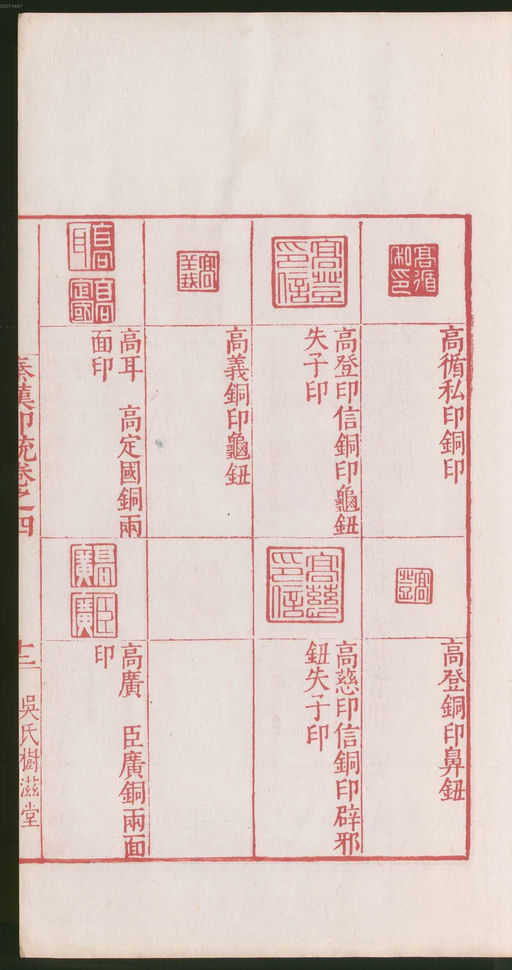 00073447
高循私印銅印
高登印信銅印龜鈕
失子印
高義銅印龜鈕
高耳　高定國銅兩
面印
高登銅印鼻鈕
高慈印信銅印辟邪
鈕失子印
高廣　臣廣銅兩面
印
高循
私印
高登
印信
高義
高耳
高定國
高登
高慈
印信
高廣
臣廣
秦漢印統卷之四
吳氏樹滋堂